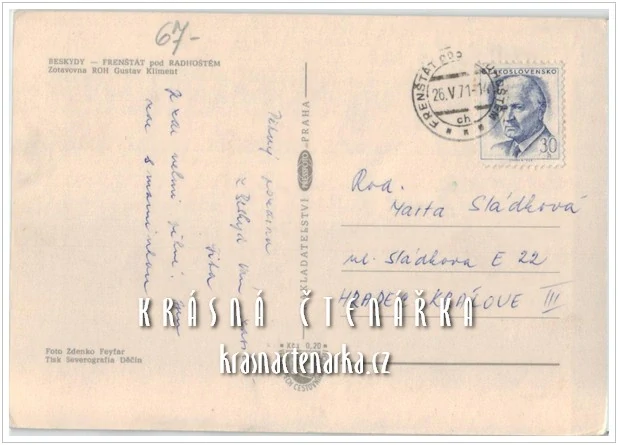 67-
BESKYDY — FRENŠTÁT pod RADHOŠTĚM
Zotavovna ROH Gustav Kliment
FRENŠTÁT POD RADHOŠTĚM
26.V.71-1
ch
ČESKOSLOVENSKO
30
z Beskyd Vám
je zde velmi
zde s maminkou
NAKLADATELSTVÍ PRAHA
Rod.
Marta Sládková
ul. Sládkova E 22
HRADEC KRÁLOVÉ III
KRÁSNÁ ČTENÁŘKA
krasnactenarka.cz
* Kčs 0,20 *
Foto Zdenko Feyfar
Tisk Severografia Děčín